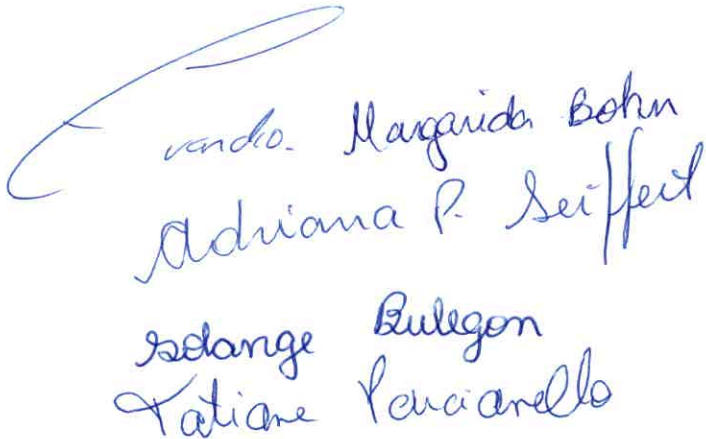 Evandro. Margarida Bohn
Adriana P. Seiffert
Solange Bulegon
Tatiane